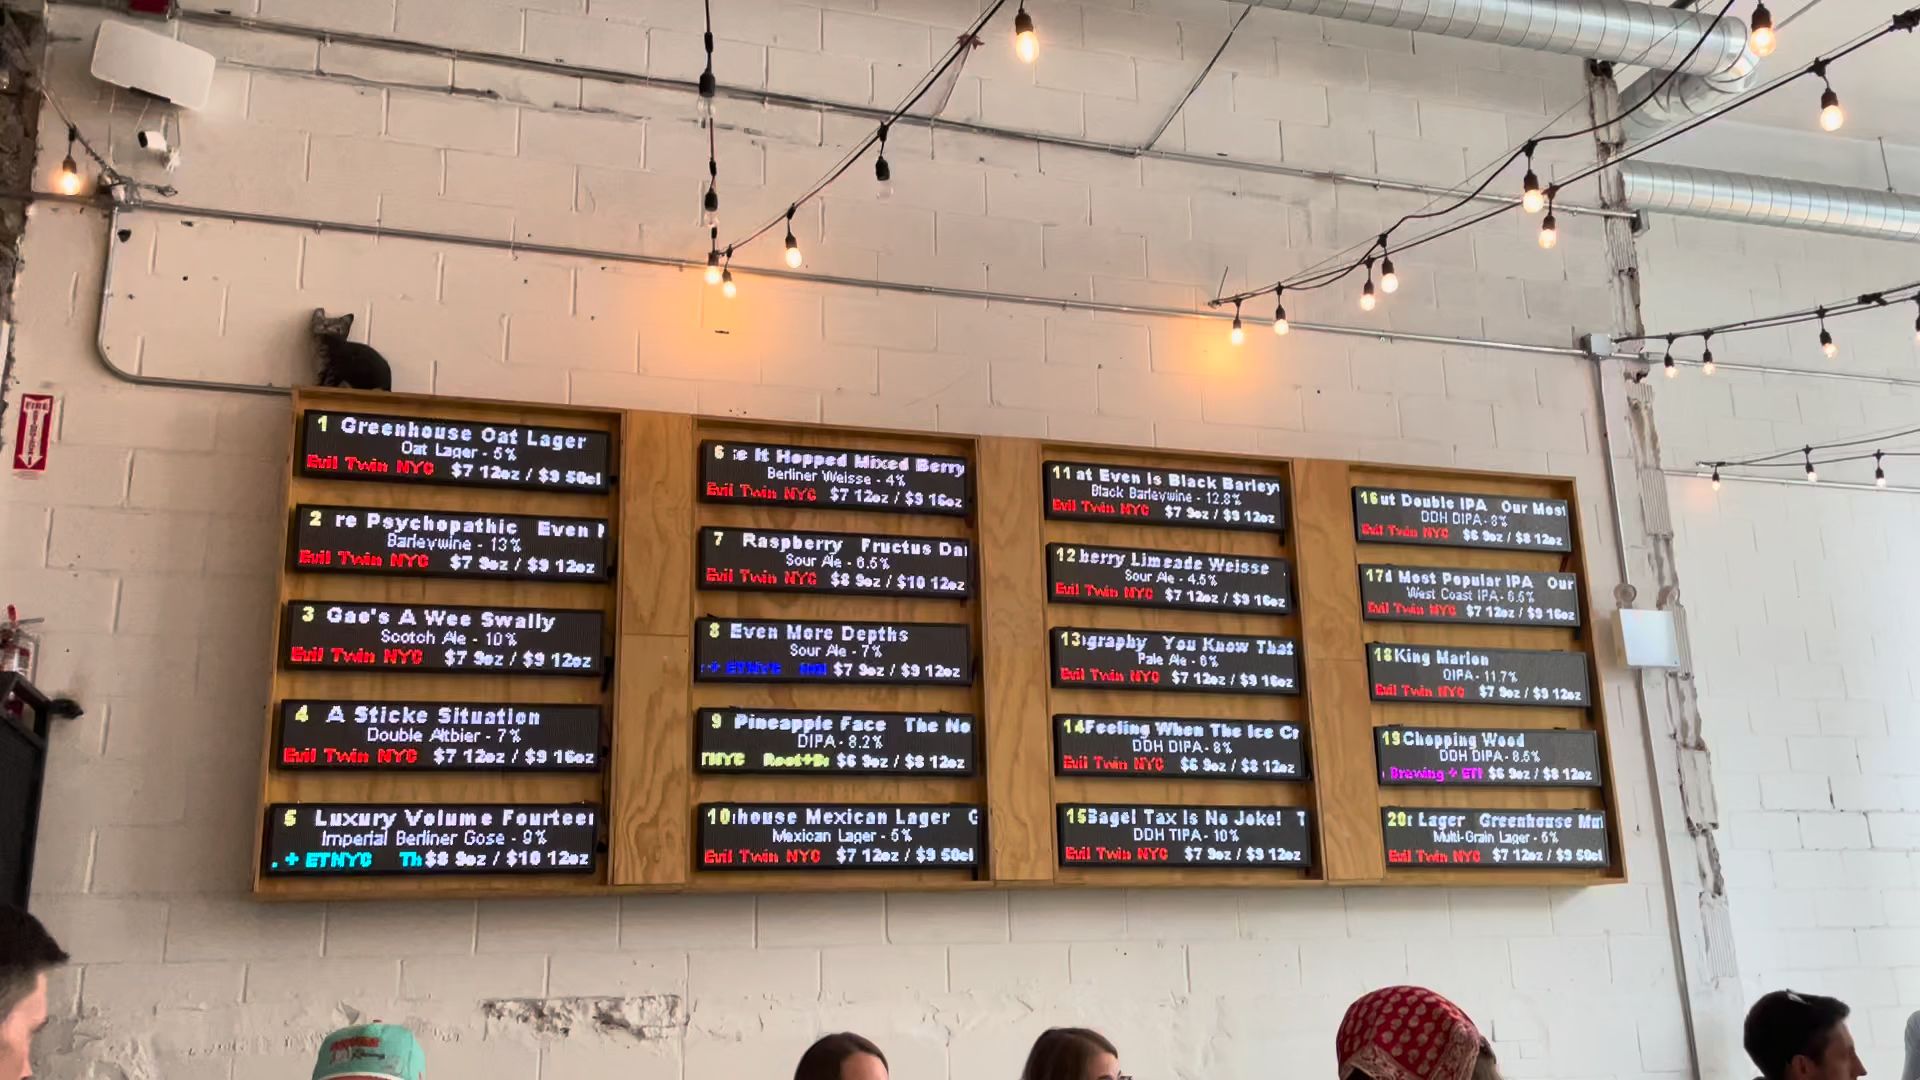 1 Greenhouse Oat Lager
Oat Lager - 5%
Evil Twin NYC $7 12oz / $9 50cl
2 re Psychopathic Even
Barleywine - 13%
Evil Twin NYC $7 9oz / $9 12oz
3 Gae's A Wee Swally
Scotch Ale - 10%
Evil Twin NYC $7 9oz / $9 12oz
4 A Sticke Situation
Double Altbier - 7%
Evil Twin NYC $7 12oz / $9 16oz
5 Luxury Volume Fourteen
Imperial Berliner Gose - 9%
. + ETNYC Th $8 9oz / $10 12oz
6 It Hopped Mixed Berry
Berliner Weisse - 4%
Evil Twin NYC $7 12oz / $9 16oz
7 Raspberry Fructus Da
Sour Ale - 6.5%
Evil Twin NYC $8 9oz / $10 12oz
8 Even More Depths
Sour Ale - 7%
+ ETNYC $7 9oz / $9 12oz
9 Pineapple Face The No
DIPA - 8.2%
TNYC Root+B $6 9oz / $8 12oz
10 house Mexican Lager G
Mexican Lager - 5%
Evil Twin NYC $7 12oz / $9 50cl
11 at Even Is Black Barley
Black Barleywine - 12.8%
Evil Twin NYC $7 9oz / $9 12oz
12 berry Limeade Weisse
Sour Ale - 4.5%
Evil Twin NYC $7 12oz / $9 16oz
13 graphy You Know That
Pale Ale - 6%
Evil Twin NYC $7 12oz / $9 16oz
14 Feeling When The Ice Cr
DDH DIPA - 8%
Evil Twin NYC $6 9oz / $8 12oz
15 Bagel Tax Is No Joke! T
DDH TIPA - 10%
Evil Twin NYC $7 9oz / $9 12oz
16 ut Double IPA Our Most
DDH DIPA - 8%
Evil Twin NYC $6 9oz / $8 12oz
17 d Most Popular IPA Our
West Coast IPA - 6.5%
Evil Twin NYC $7 12oz / $9 16oz
18 King Marlon
QIPA - 11.7%
Evil Twin NYC $7 9oz / $9 12oz
19 Chopping Wood
DDH DIPA - 8.5%
Brewing + ET $6 9oz / $8 12oz
20 r Lager Greenhouse Mul
Multi-Grain Lager - 5%
Evil Twin NYC $7 12oz / $9 50cl
FIRE